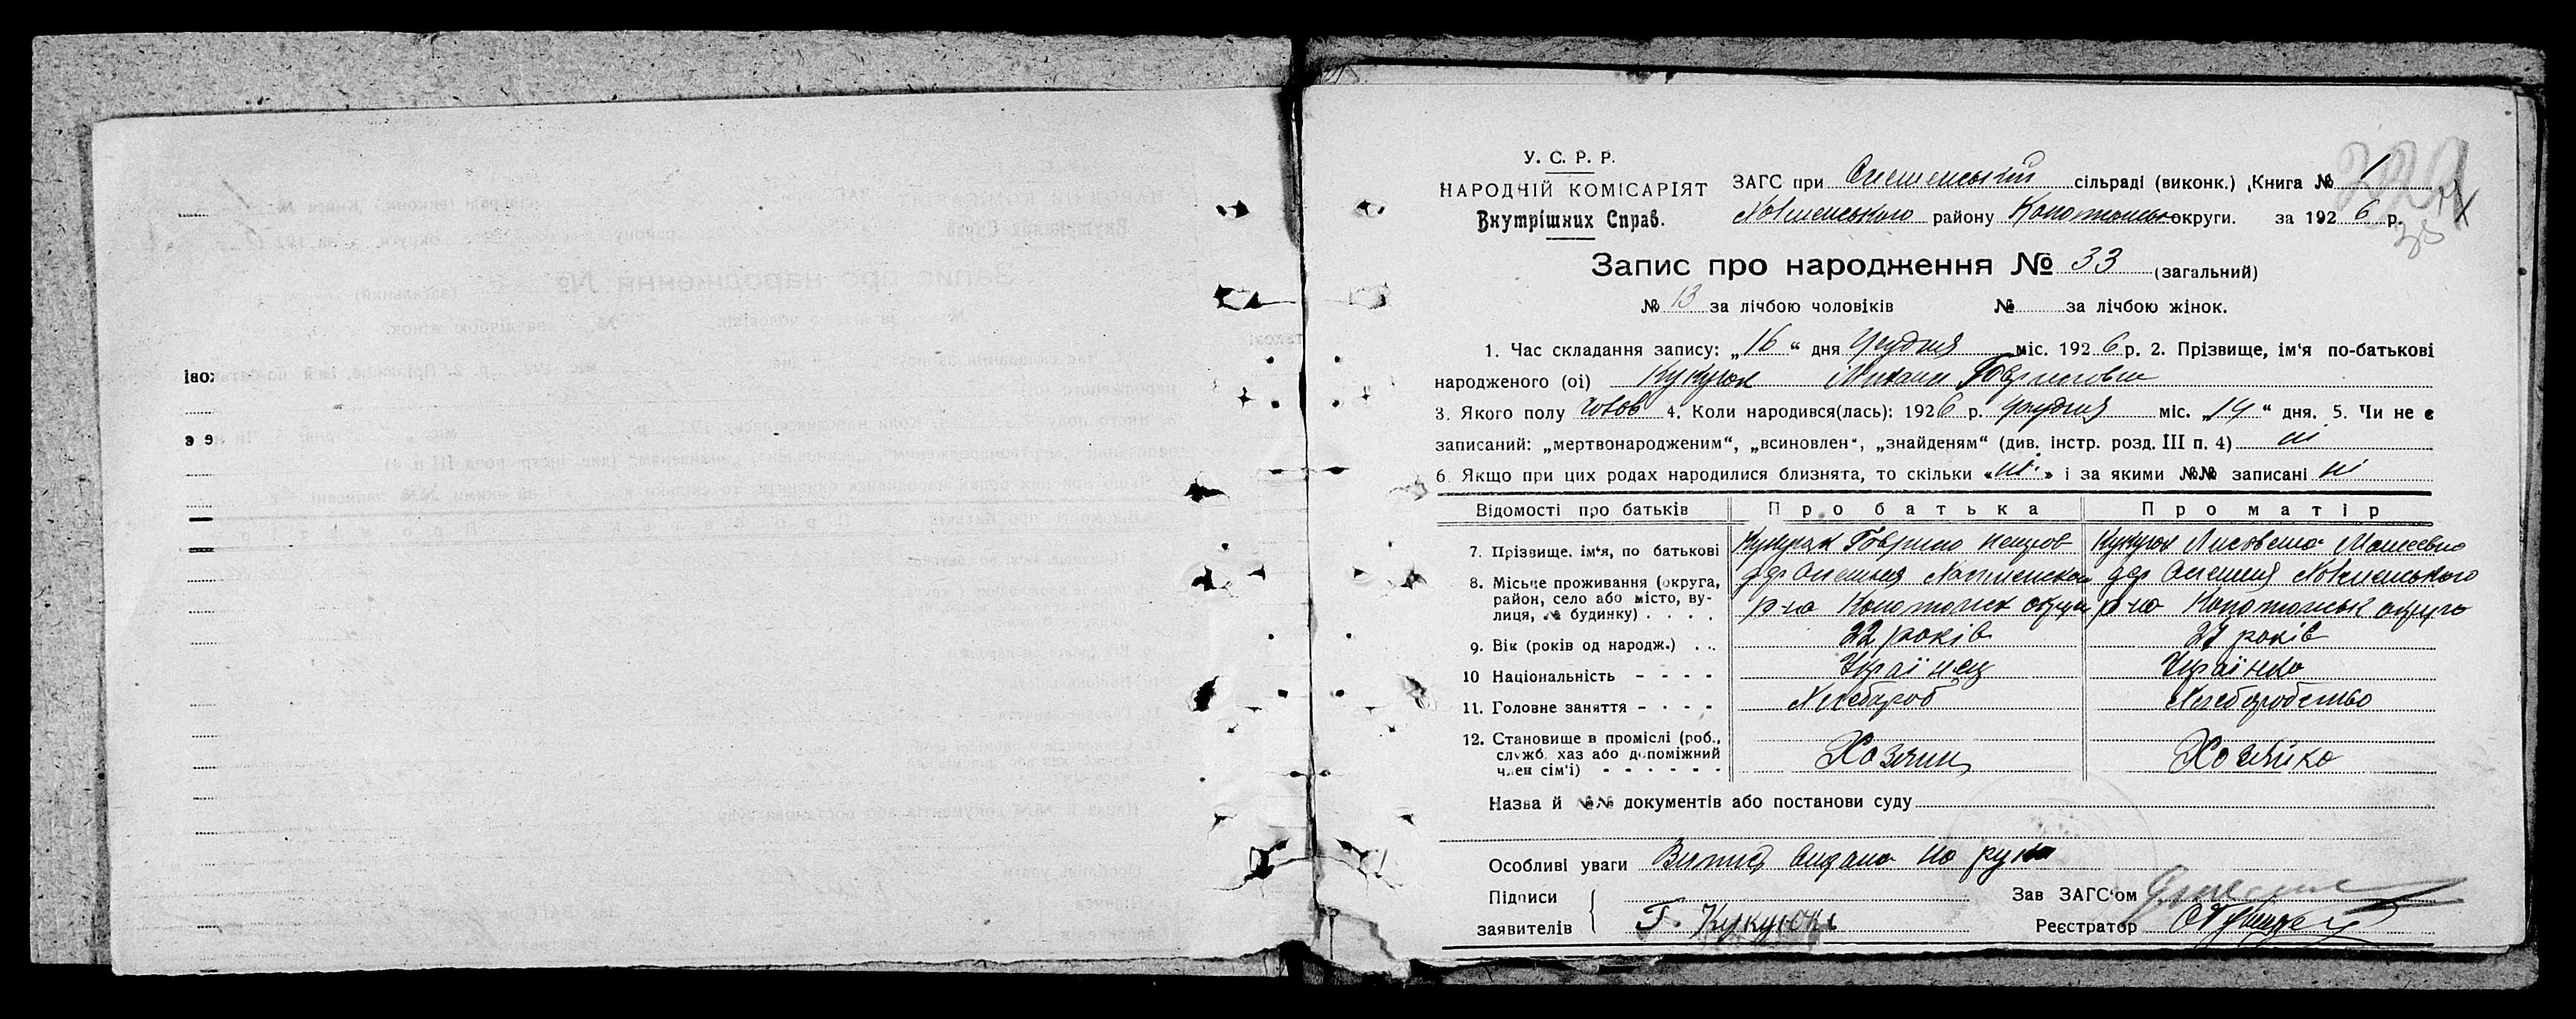 У. С. Р. Р.
НАРОДНІЙ КОМІСАРІЯТ
Внутрішних Справ.
ЗАГС при сільраді (виконк.) Книга № 1
району округи. за 1926 р.
Запис про народження № 33 (загальний)
№ 13 за лічбою чоловіків № за лічбою жінок.
1. Час складання запису: „16“ дня Грудня міс. 1926 р. 2. Прізвище, ім'я по-батькові
народженого (ої) Кукуюк
3. Якого полу чолов 4. Коли народився(лась): 1926 р. грудня міс. „14“ дня. 5. Чи не є
записаний: „мертвонародженим“, „всиновлен“, „знайденям“ (див. інстр. розд. III п. 4) ні
6 Якщо при цих родах народилися близнята, то скільки «ні» і за якими №№ записані ні
Відомості про батьків Про батька Про матір
7. Прізвище, ім'я, по батькові Кукуюк Гаврило Кукуюк
8. Місьце проживання (округа, район, село або місто, вулиця, № будинку) р-на Конотопск округи р-на округи
9. Вік (років од народж.) 22 років 27 років
10 Національність Українец Українка
11. Головне заняття Хлебороб Хлеборобство
12. Становище в промислі (роб., служб. хаз або допоміжний член сім'ї) Хозяин Хозяйка
Назва й №№ документів або постанови суду
Особливі уваги Витяг видана на руки
Підписи
заявителів Г. Кукуюк
Зав ЗАГС'ом
Реєстратор